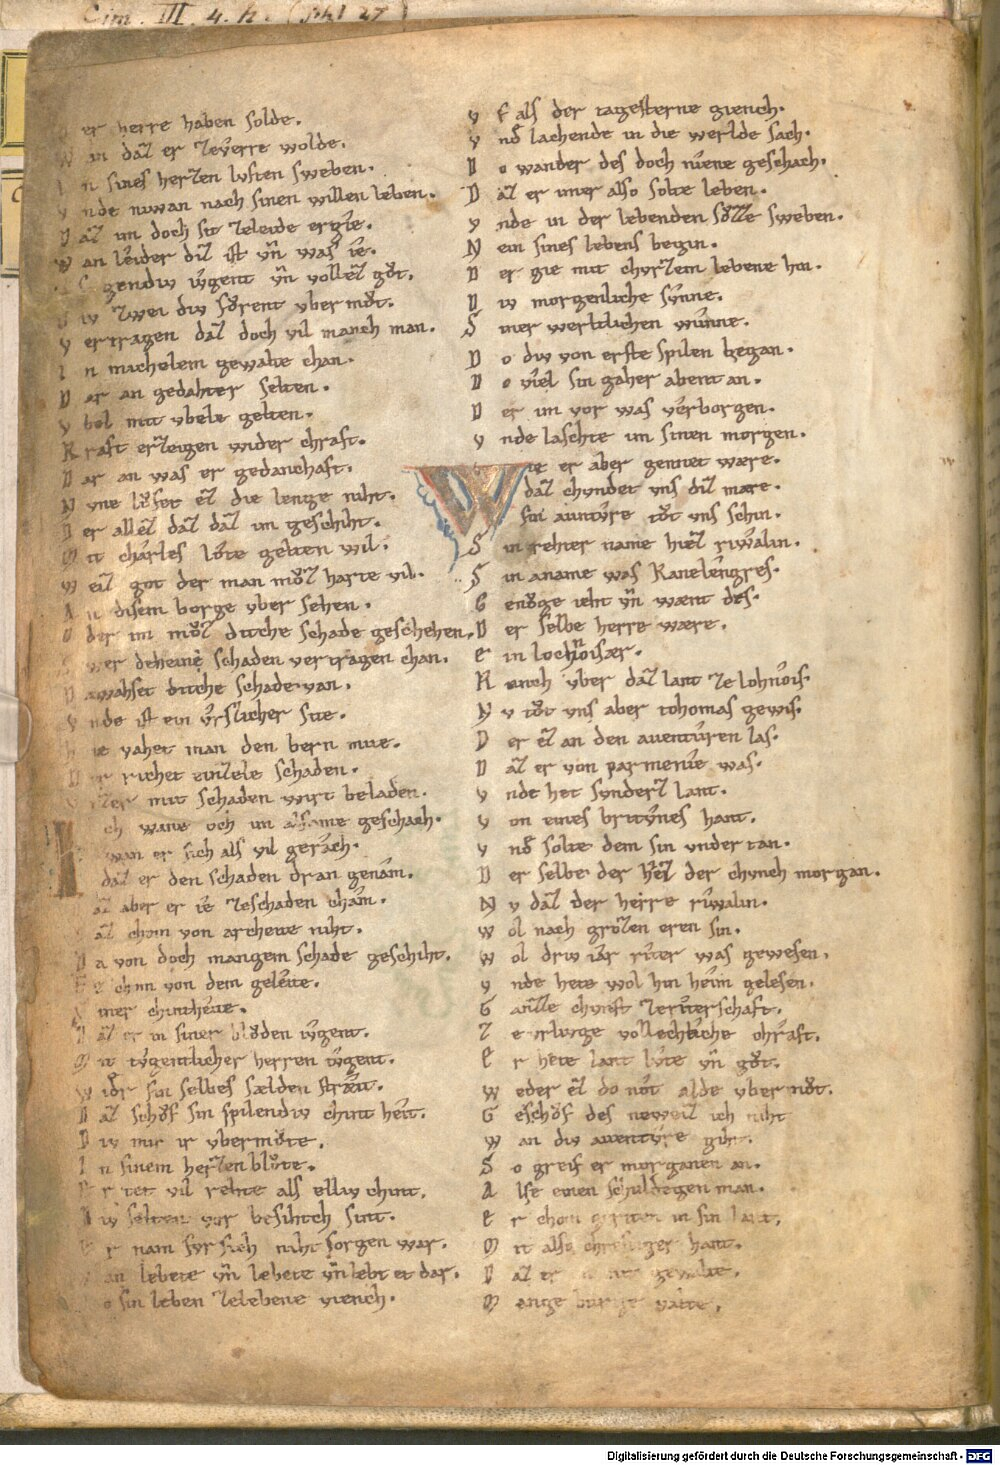 Cim. III. 4. h.
er herre haben solde.
an daz er zeverre wolde.
n sines herzen lvsten sweben.
nde niwan nach sinen willen leben.
D az im doch sit zeleide ergîe.
W an leider diz ist vn̄ was ie.
gendiv ivgent vn̄ vollez gv̊t.
iv zwei div fv̊rent vber mv̊t.
V ertragen daz doch vil manch man.
I n michelem gewalte chan.
D ar an gedahter selten.
V bel mit vbele gelten.
K raft erzeigen wider chraft.
D ar an was er gedanchaft.
N vne lovfet ez die lenge niht.
D er allez daz daz im geschiht.
M it charles lote gelten wil.
W eiz got der man mv̊z harte vil.
A n disem borge vber sehen.
O der im mv̊z diche schade geschehen.
S wer deheine schaden vertragen chan.
D awahset diche schade van.
V nde ist ein vrslicher site.
H ie vahet man den bern mite.
D er richet einzele schaden.
mit schaden wirt beladen.
I ch wane och im alsame geschach.
wan er sich als vil gerach.
daz er den schaden dran genam.
az aber er ie zeschaden cham.
az chom von archeite niht.
D a von doch mangem schade geschiht.
E z chom von dem geleite.
S iner chintheite.
D az er in siner blv̊den ivgent.
M it tvgentlicher herren ivgent.
W idr sin selbes sælden streit.
D az schv̊f sin spilendiv chint heit.
D iv mit ir vbermv̊te.
I n sinem herzen blv̊te.
E r tet vil rehte als elliv chint.
D iv selten vor besihtch sint.
E r nam fvr sich niht sorgen war.
an lebete vn̄ lebete vn̄ lebt et dar.
D o sin leben zelebene viench.
V f als der tagesterne giench.
V nd̄ lachende in die werlde sach.
D o wander des doch niene geschach.
D az er imer also solte leben.
V nde in der lebenden sv̊zze sweben.
N ein sines lebens begin.
D er gie mit chvrzem lebene hin.
D iv morgenliche svnne.
S iner werltlichen wunne.
D o div von erste spilen began.
D o viel sin gaher abent an.
D er im vor was verborgen.
V nde laschte im sinen morgen.
W ie er aber gennet wære.
daz chvndet vns diz mære.
sin auntvre tv̊t vns schin.
S in rehter name hiez riwalin.
S in aname was Kanelengres.
G envge ieht vn̄ wænt des.
D er selbe herre wære.
E in lochnoisær.
K vnch vber daz lant ze lohnois.
N v tv̊t vns aber tohomas gewis.
D er ez an den aventvren las.
D az er von parmenie was.
V nde het svnderz lant.
V on eines britvnes hant.
V nd̄ solte dem sin vnder tan.
D er selbe der hiez der chvnch morgan.
N v daz der herre riwalin.
W ol nach grozen eren sin.
W ol driv iar riter was gewesen.
V nde hete wol hin heim gelesen.
G anzze chvnst zeriterschaft.
Z e vrlvge vollechliche chraft.
E r hete lant lvte vn̄ gv̊t.
W eder ez do not alde vber mv̊t.
G eschv̊f des neweiz ich niht
W an div aventvre giht.
S o greif er morganen an.
A lse einen schuldegen man.
E r chom geriten in sin lant.
M it also chreftiger hant.
D az er gewalte.
M ange burge valte.
Digitalisierung gefördert durch die Deutsche Forschungsgemeinschaft - DFG